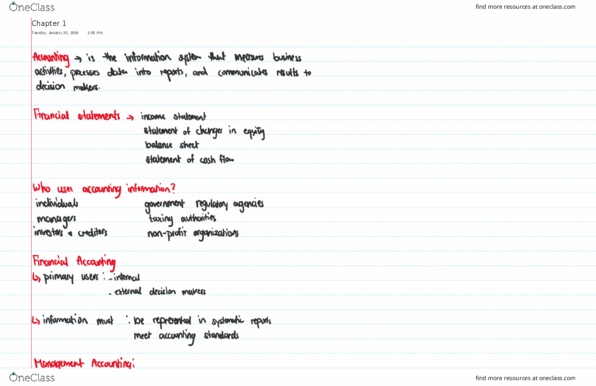 OneClass
find more resources at oneclass.com
Chapter 1
Accounting → is the information system that measures business
activities, processes data into reports, and communicates results to
decision makers.
Financial statements → income statement
statement of changes in equity
balance sheet
statement of cash flow
Who uses accounting information?
individuals government regulatory agencies
managers taxing authorities
investors & creditors non-profit organizations
Financial Accounting
↳ primary users : - internal
- external decision makers
↳ information must : be represented in systematic reports
meet accounting standards
Management Accounting:
OneClass
find more resources at oneclass.com